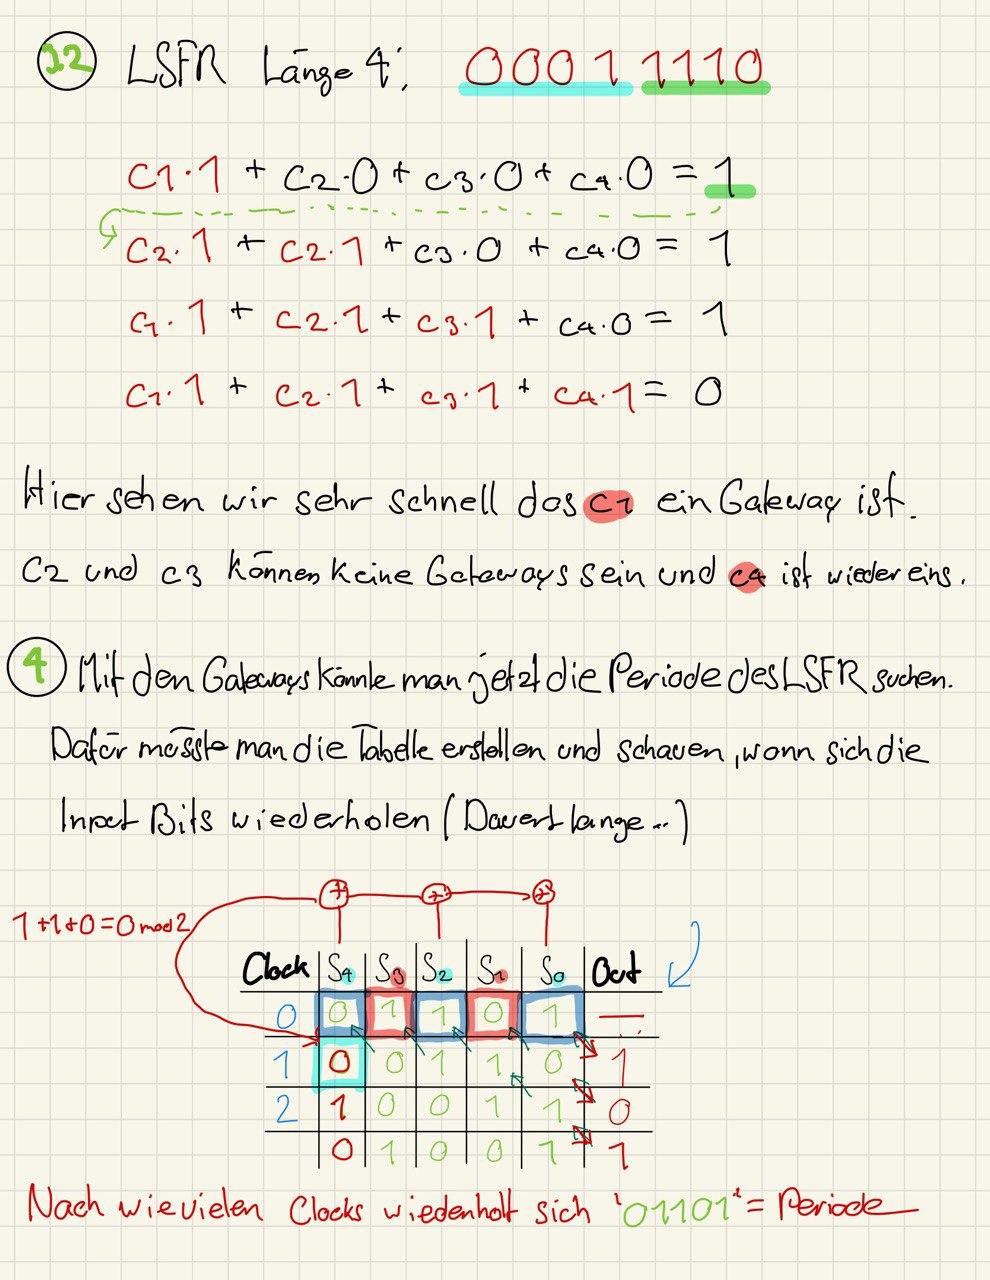 12 LSFR Länge 4; 0001 1110
c1·1 + c2·0 + c3·0 + c4·0 = 1
c2·1 + c2·1 + c3·0 + c4·0 = 1
c1·1 + c2·1 + c3·1 + c4·0 = 1
c1·1 + c2·1 + c3·1 + c4·1 = 0
Hier sehen wir sehr schnell das c1 ein Gateway ist.
C2 und c3 können keine Gateways sein und c4 ist wieder eins.
4 Mit den Gateways könnte man jetzt die Periode des LSFR suchen.
Dafür müsste man die Tabelle erstellen und schauen, wann sich die
Input Bits wiederholen (Dauert lange...)
+ + +
1+1+0=0 mod 2
Clock S4 S3 S2 S1 S0 Out
0 0 1 1 0 1 —
1 0 0 1 1 0 1
2 1 0 0 1 1 0
0 1 0 0 1 1
Nach wievielen Clocks wiedenholt sich "01101" = Periode